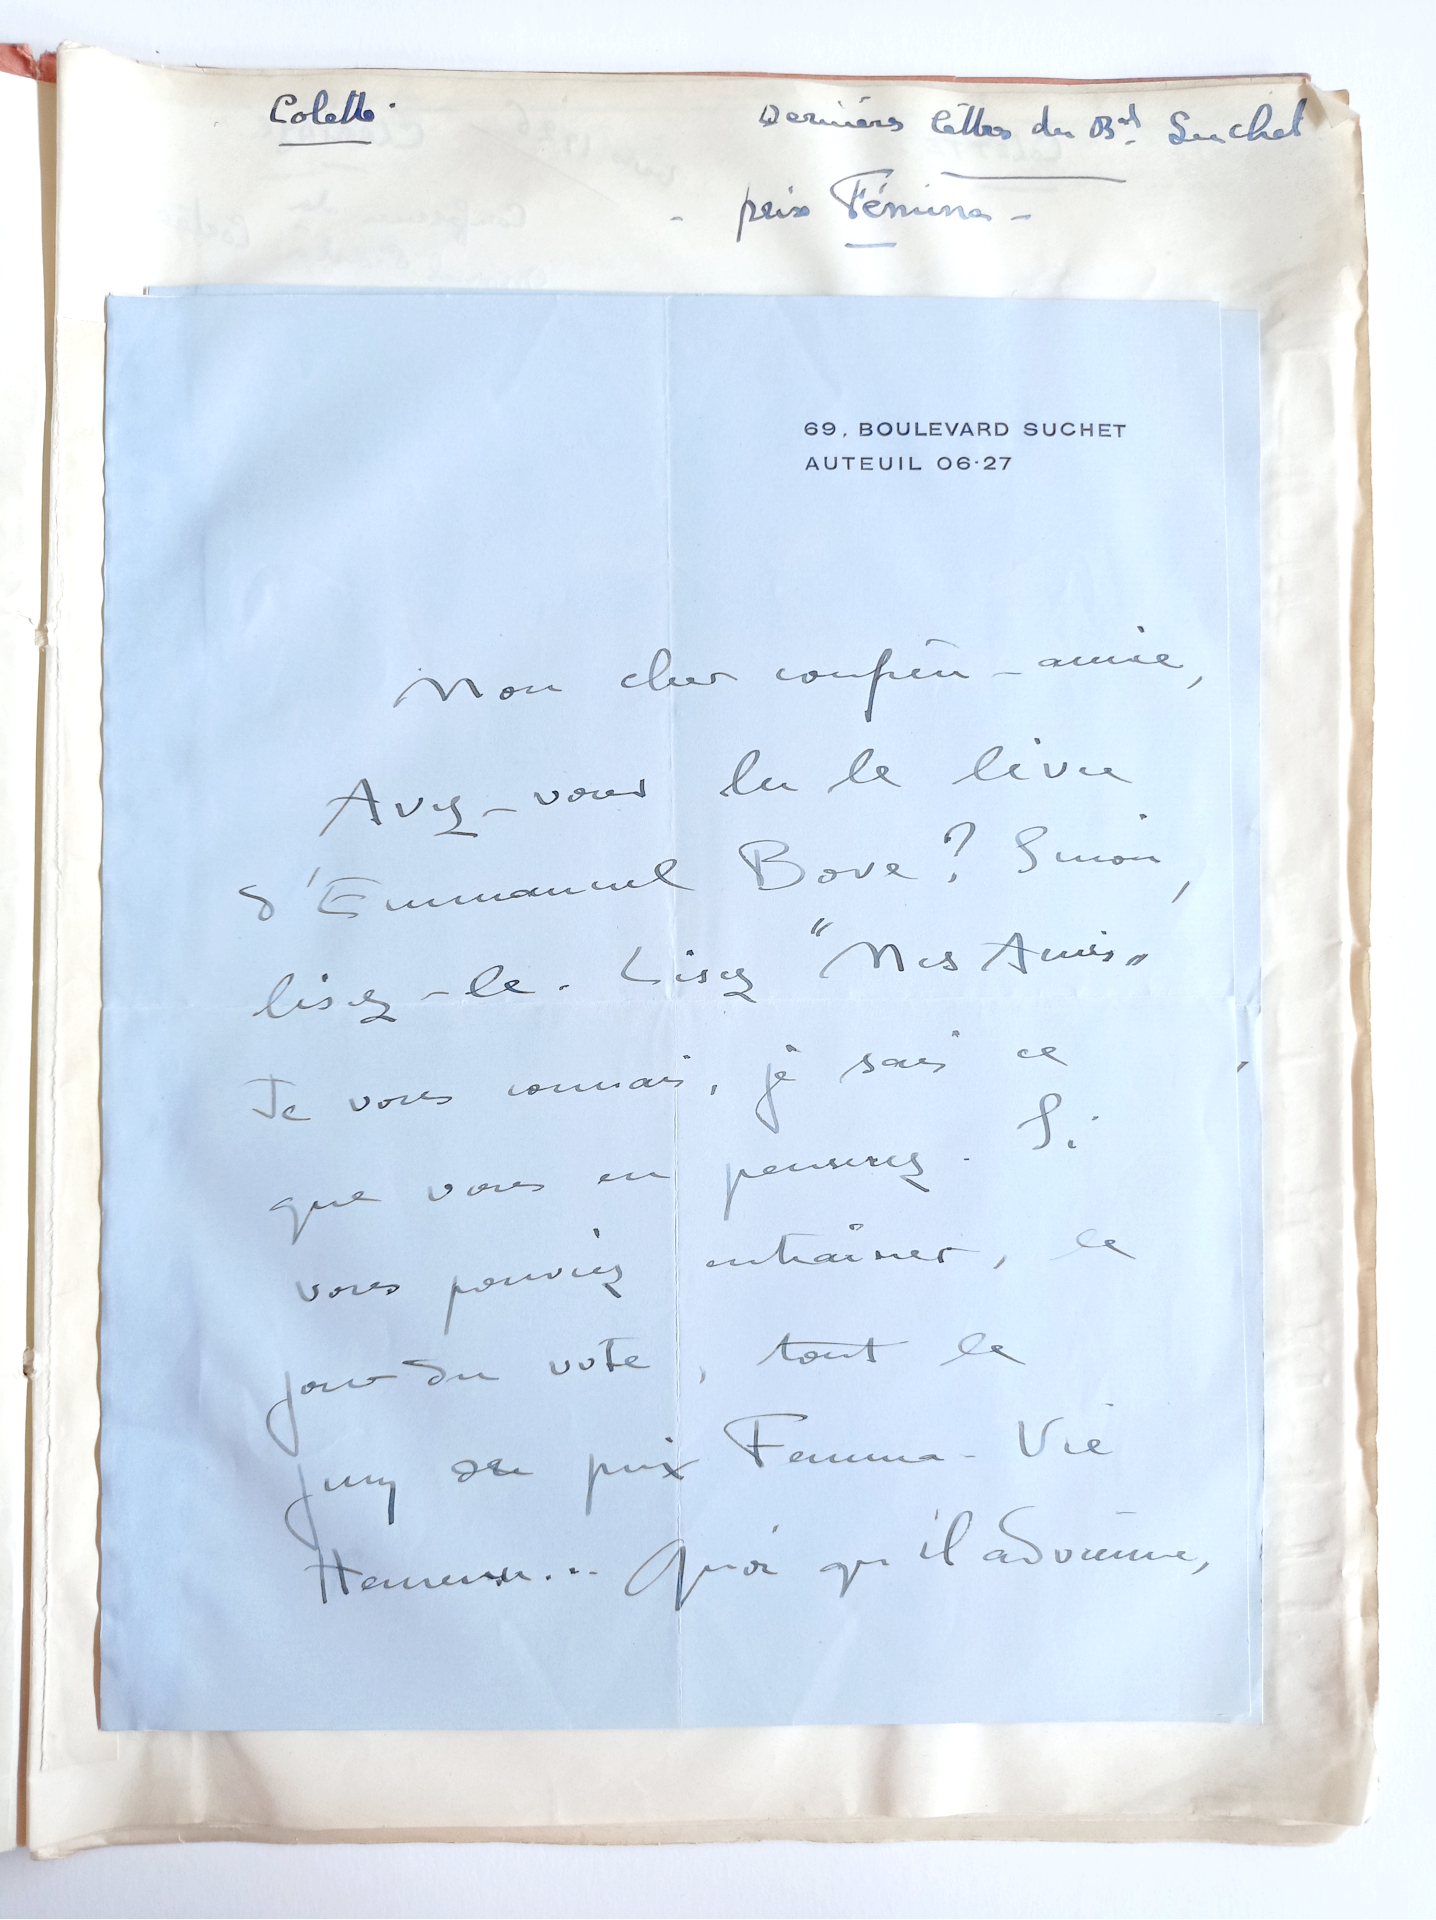 Colette.
Dernières lettres du Bd Suchet
- prix Fémina -
69, BOULEVARD SUCHET
AUTEUIL 06·27
Mon cher confrère-amie,
Avez-vous lu le livre
d'Emmanuel Bove? Sinon,
lisez-le. Lisez "Mes Amis"
Je vous connais, je sais ce
que vous en penserez. Si
vous pouviez entraîner, le
jour du vote, tout le
jury du prix Femina-Vie
Heureuse... Quoi qu'il advienne,